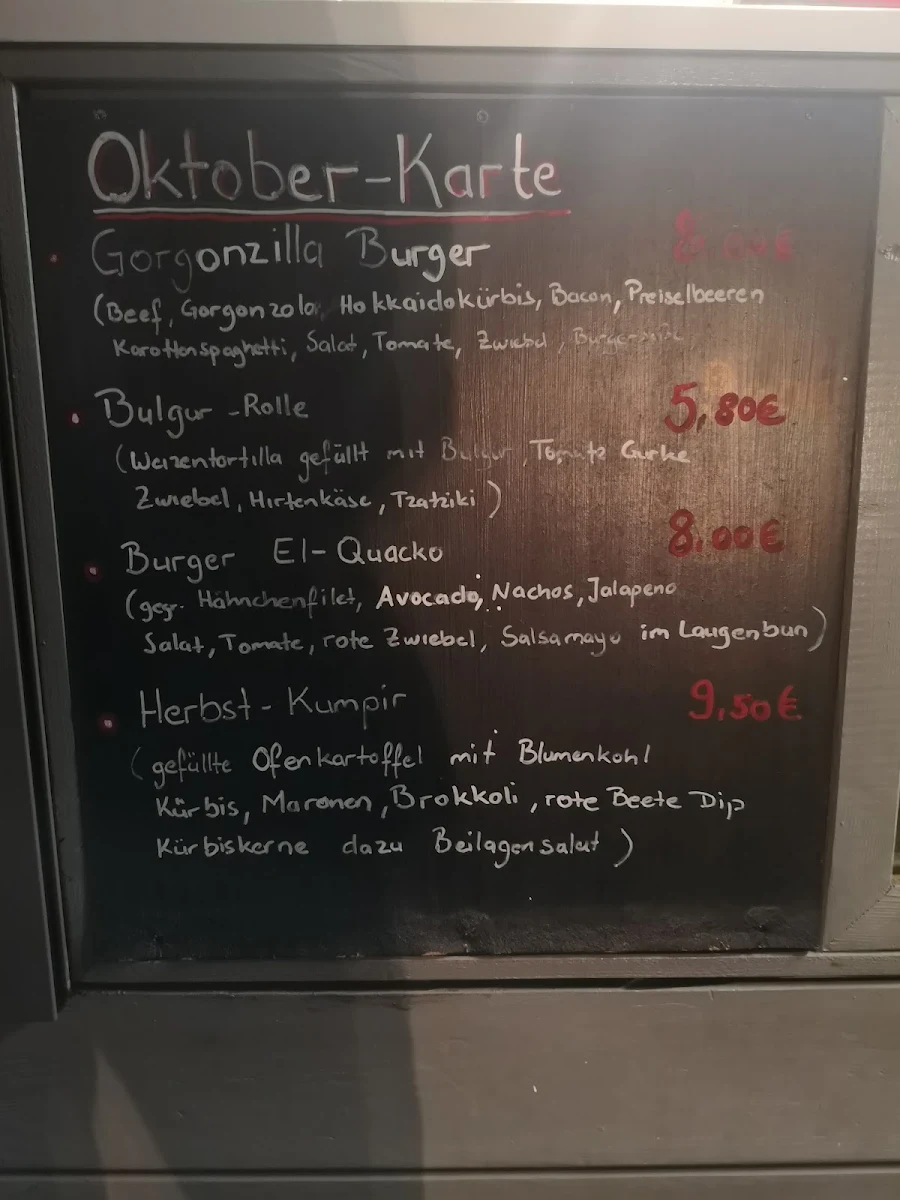 Oktober-Karte
Gorgonzilla Burger 8.00€
(Beef, Gorgonzola, Hokkaidokürbis, Bacon, Preiselbeeren
Karottenspaghetti, Salat, Tomate, Zwiebel,
Bulgur-Rolle 5,80€
(Weizentortilla gefüllt mit Bulgur, Tomate Gurke
Zwiebel, Hirtenkäse, Tzatziki)
Burger El-Quacko 8.00€
(geg. Hähnchenfilet, Avocado, Nachos, Jalapeno
Salat, Tomate, rote Zwiebel, Salsamayo im Laugenbun)
Herbst-Kumpir 9,50€
(gefüllte Ofenkartoffel mit Blumenkohl
Kürbis, Maronen, Brokkoli, rote Beete Dip
Kürbiskerne dazu Beilagensalat)